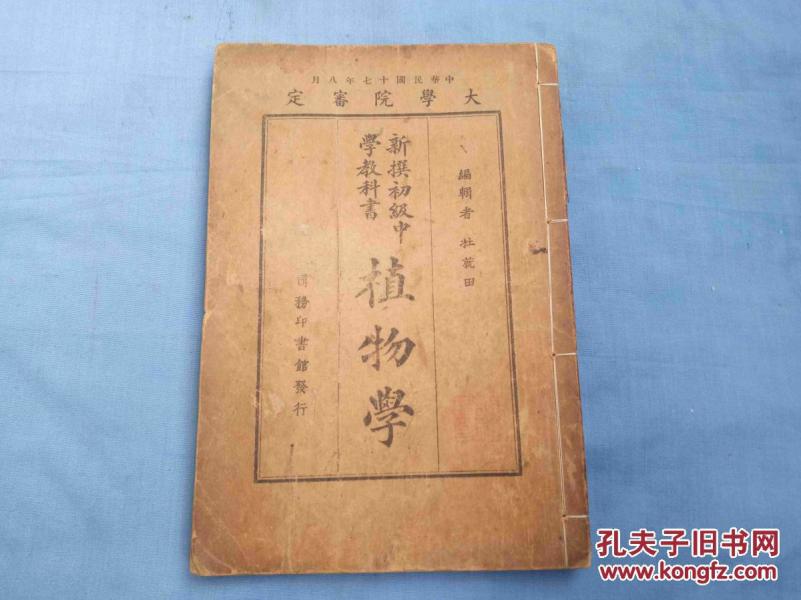 中華民國十七年八月
大學院審定
編輯者 杜就田
新撰初級中
學教科書
植物學
商務印書館發行
孔夫子旧书网
www.kongfz.com